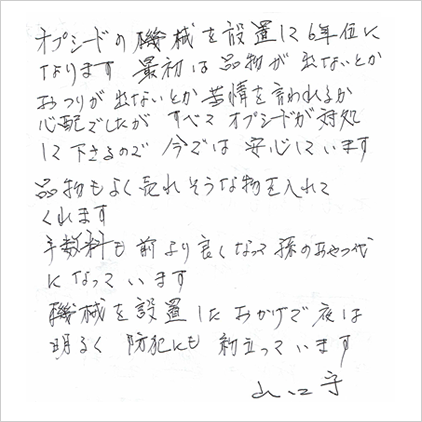 オプシードの機械を設置して6年位に
なります 最初は品物が出ないとか
おつりが出ないとか苦情を言われるか
心配でしたが すべて オプシードが対処
して下さるので 今では 安心しています
品物もよく売れそうな物を入れて
くれます
手数料も前より良くなって孫のおやつ代
になっています
機械を設置したおかげで夜は
明るく 防犯にも 役立っています
山口 守